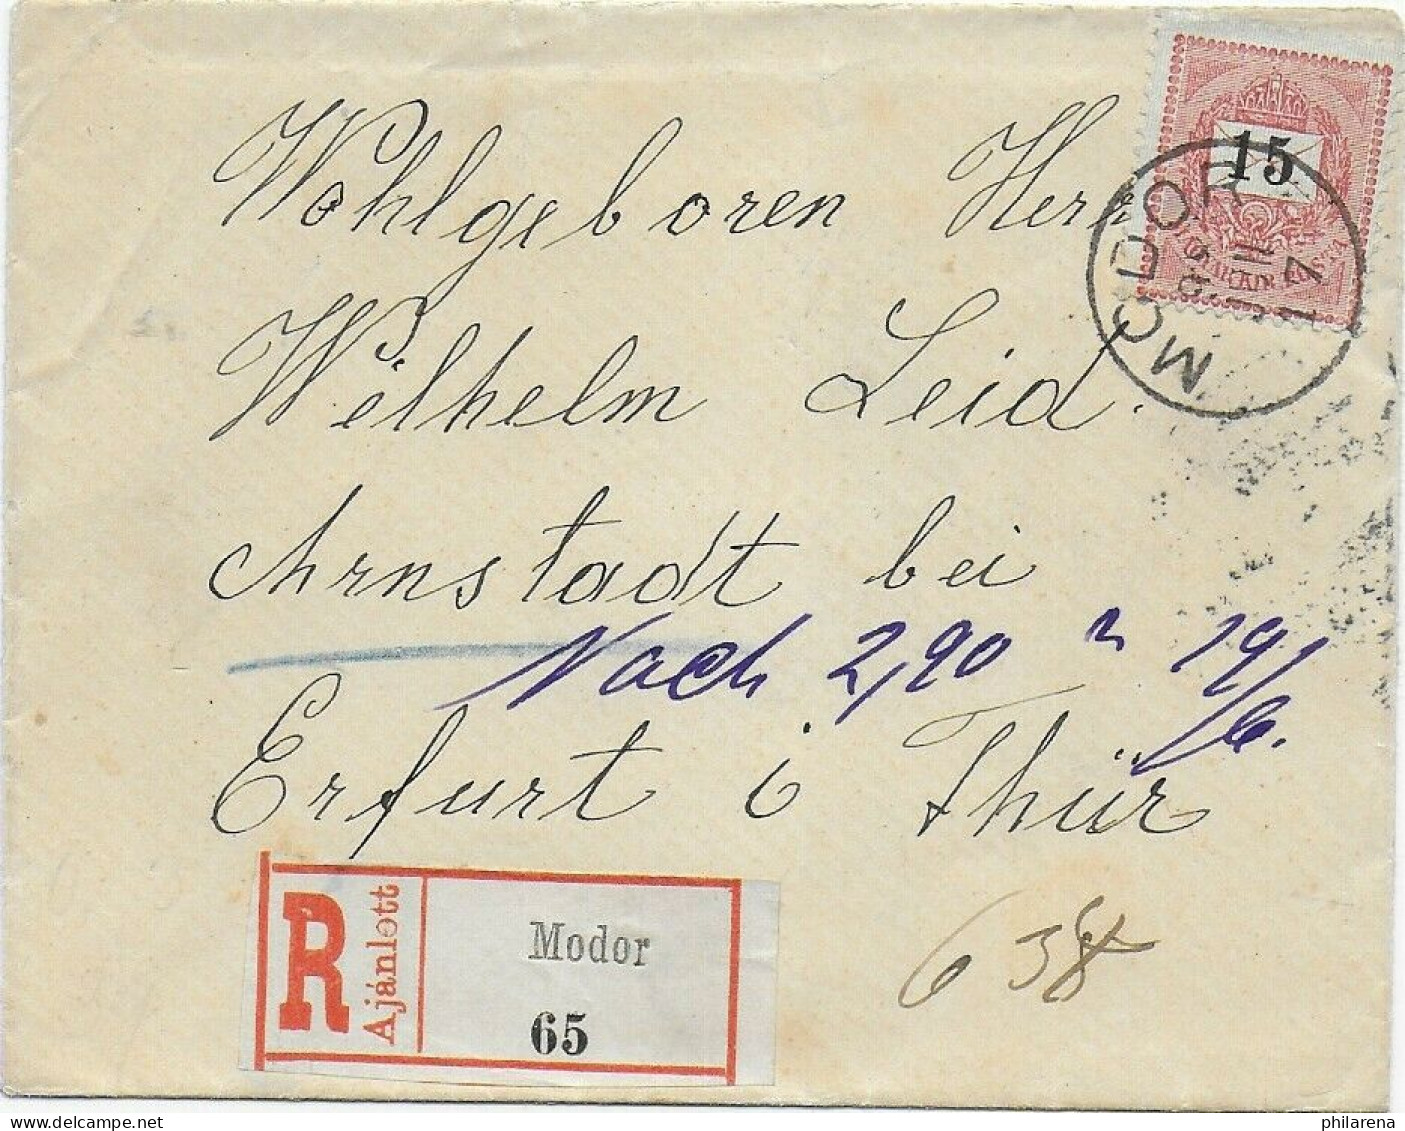 Wohlgeboren Herrn
15
MAGYAR KIR. POSTA
MODOR
Wilhelm Leid.
Arnstadt bei
Nach 2,90 19/6.
Erfurt i Thür
R
Ajánlott
Modor
65
638
philarena